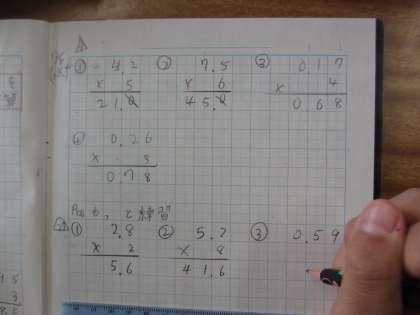 ① 4.2 ② 7.5 ③ 0.17
× 5 × 6 × 4
21.0 45.0 0.68
④ 0.26
×
0.78
練習
① 2.8 ② 5.2 ③ 0.59
× 2 × 8
5.6 41.6